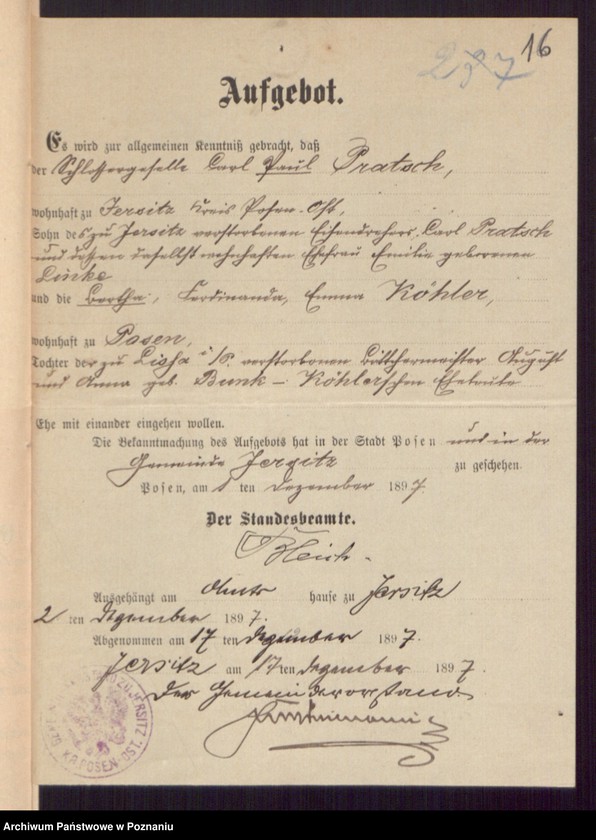 16
237
Aufgebot.
Es wird zur allgemeinen Kenntniß gebracht, daß
der Schlossergeselle Carl Paul Pratsch,
wohnhaft zu Jersitz Kreis Posen-Ost,
Sohn des zu Jersitz verstorbenen Eisendrehers Carl Pratsch
und dessen daselbst wohnhaften Ehefrau Emilie geborenen
Linke
und die Bertha, Ferdinanda, Emma Köhler,
wohnhaft zu Posen,
Tochter der zu Lissa i/P. verstorbenen Böttchermeister August
und Anna geb. Bunk - Köhlerschen Eheleute
Ehe mit einander eingehen wollen.
Die Bekanntmachung des Aufgebots hat in der Stadt Posen und in der
Gemeinde Jersitz zu geschehen.
Posen, am 1 ten Dezember 1897.
Der Standesbeamte.
Ausgehängt am Amts hause zu Jersitz
2 ten Dezember 1897.
Abgenommen am 17 ten Dezember 1897.
Jersitz am 17 ten Dezember 1897.
Der Gemeindevorstand
ZU JERSITZ KR. POSEN-OST.
Archiwum Państwowe w Poznaniu